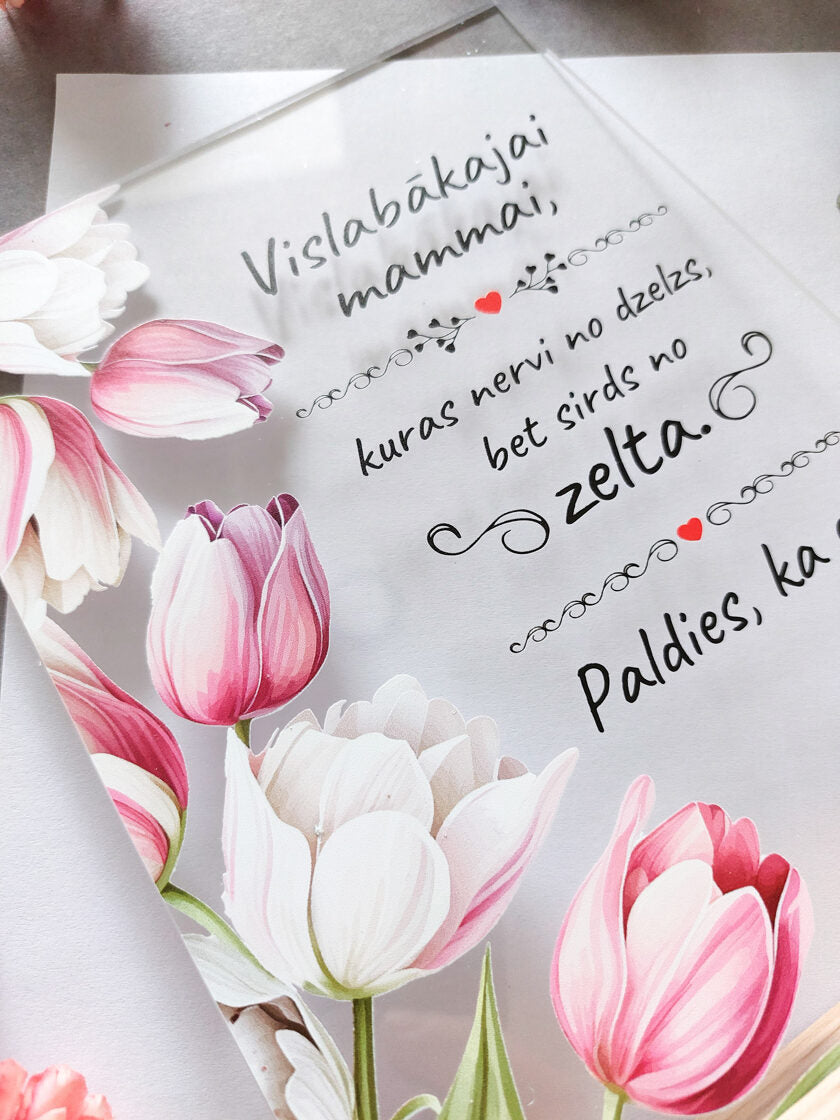 Vislabākajai
mammai,
kuras nervi no dzelzs,
bet sirds no
zelta.
Paldies, ka